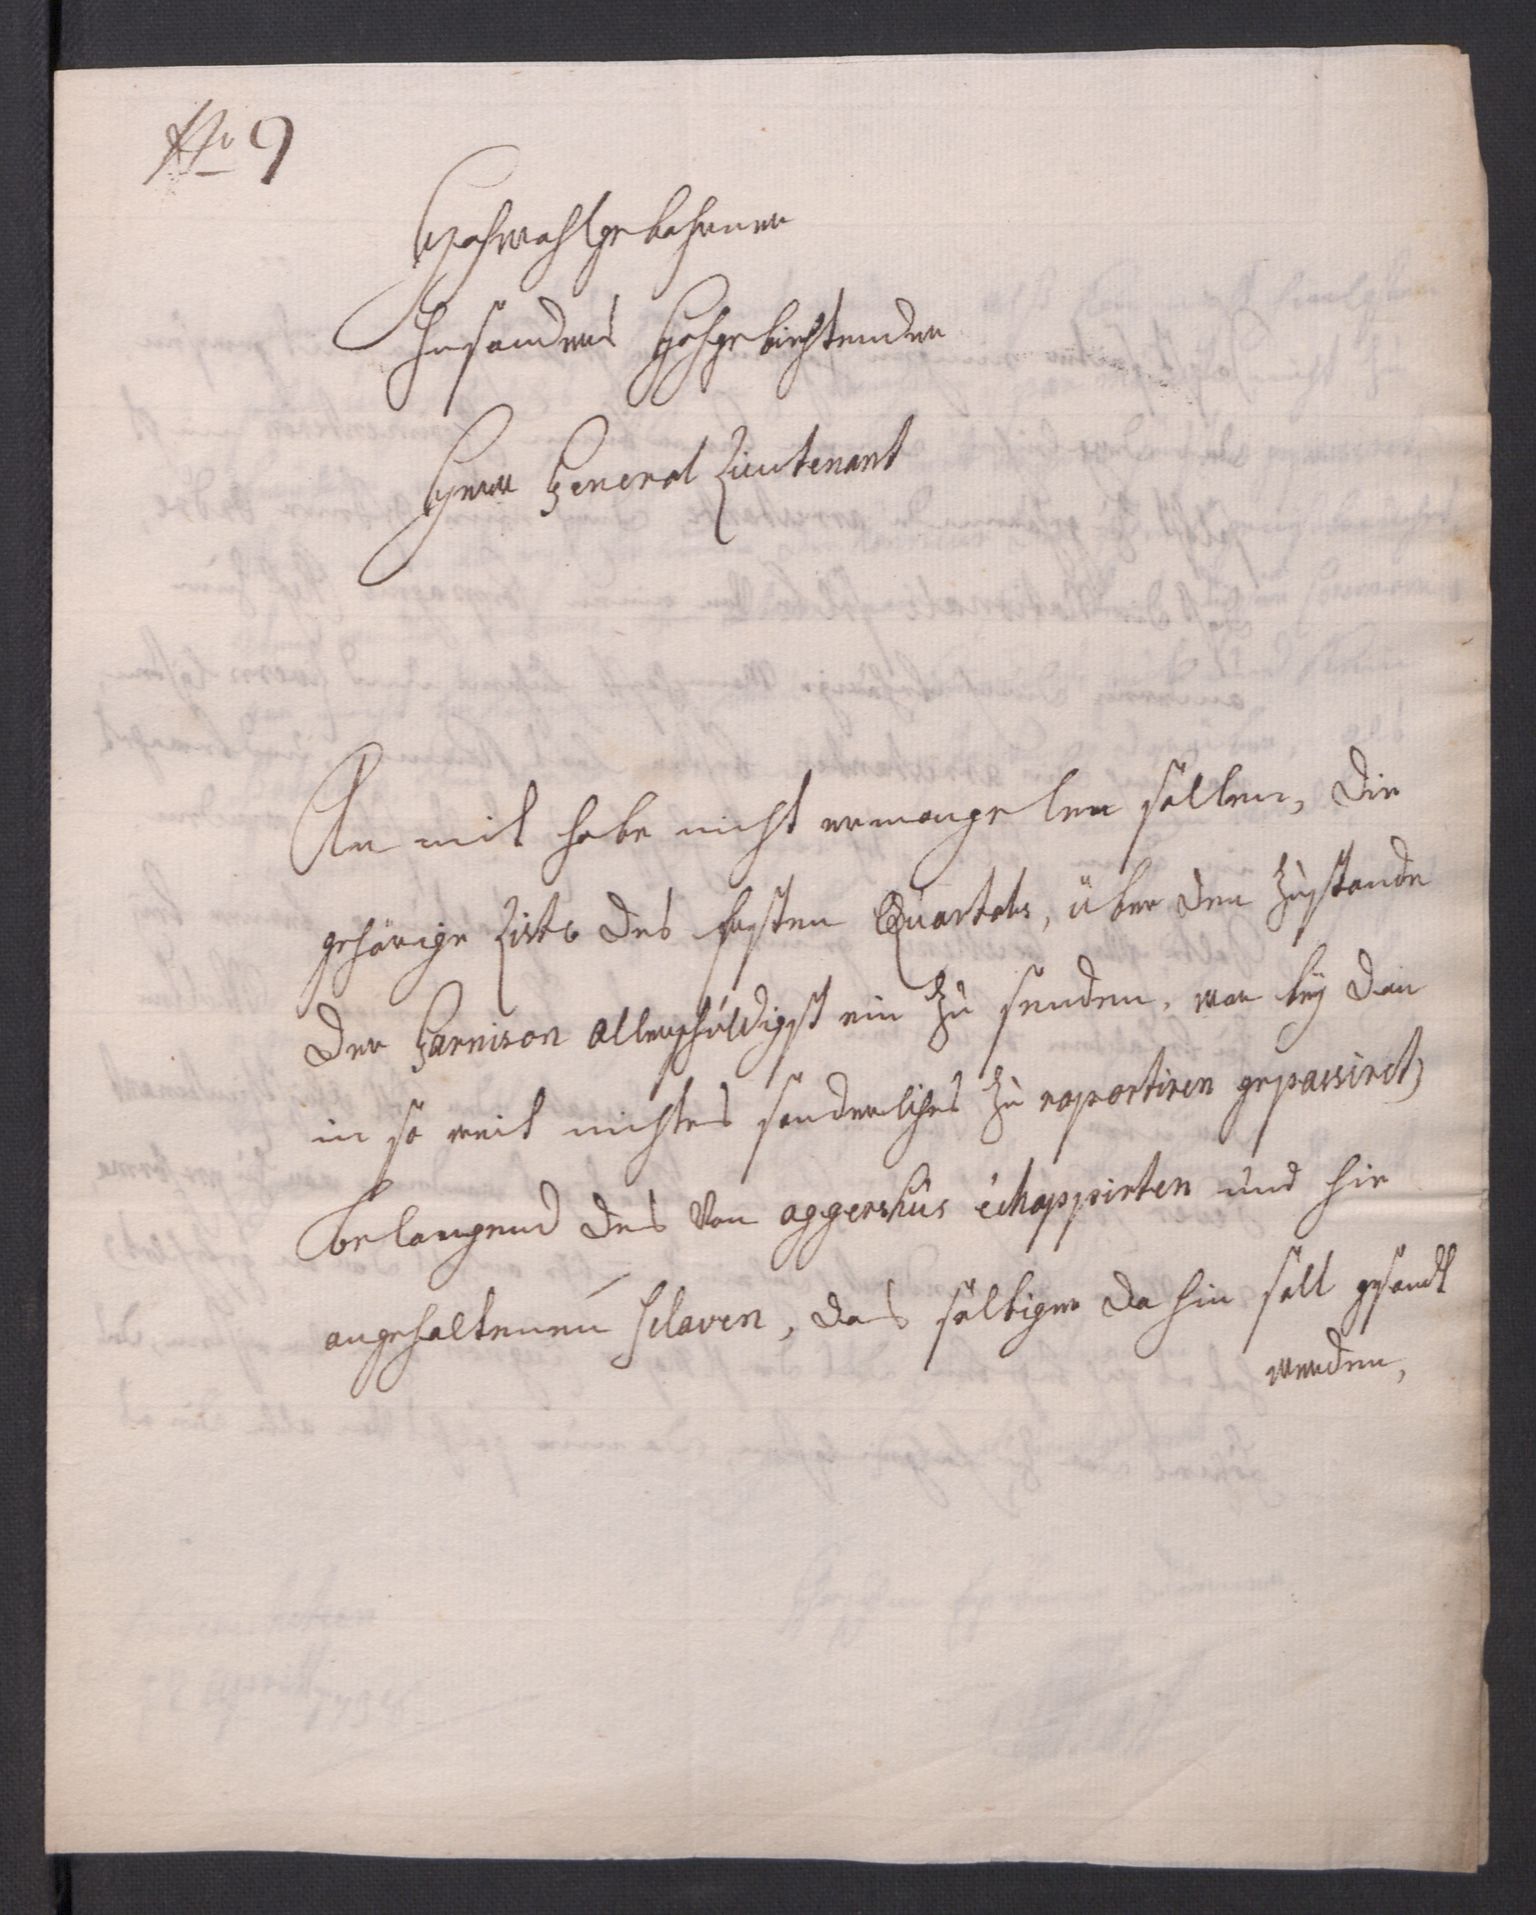 No 9
Hochwohlgebohrner
Insonders Hochgebiehtender
Herr General Lieutenant
An mit habe nicht ermangelen sollen, die
gehörige Liste des ersten Quartals, über den Zustande
der Garnison allerschüldigst ein zu senden, wor beÿ dan
in so weit nichtes sonderliches zu raportiren gepassiret,
belangend des von aggershüs échappirten und hie
angehaltenen sclaven, das solbiger da hin soll gesandt
werden,